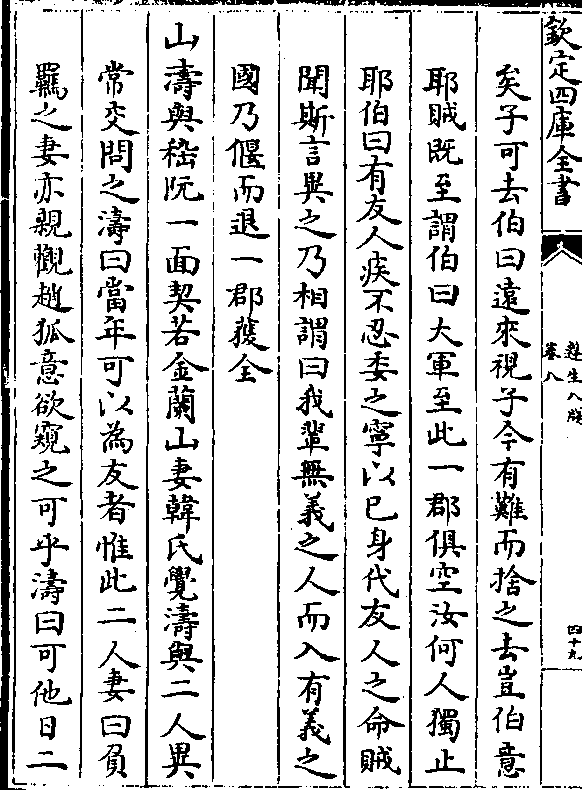 欽定四庫全書
遵生八牋
卷八
四十九
矣子可去伯曰遠來視子今有難而捨之去豈伯意
耶賊既至謂伯曰大軍至此一郡俱空汝何人獨止
耶伯曰有友人疾不忍委之寧以己身代友人之命賊
聞斯言異之乃相謂曰我輩無義之人而入有義之
國乃偃而退一郡獲全
山濤與嵇阮一面契若金蘭山妻韓氏覺濤與二人異
常交問之濤曰當年可以為友者惟此二人妻曰負
羈之妻亦親觀趙狐意欲窺之可乎濤曰可他日二